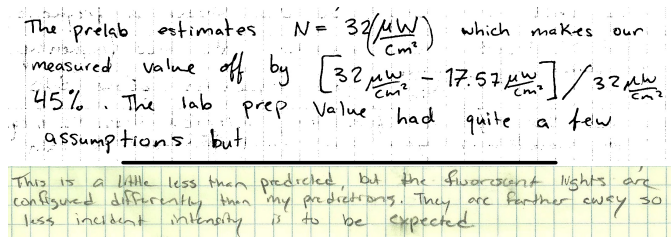 The prelab estimates N = 32 (μW/cm²) which makes our
measured value off by [32 μW/cm² - 17.57 μW/cm²] / 32 μW/cm²
45%. The lab prep value had quite a few
assumptions but
This is a little less than predicted, but the fluorescent lights are
configured differently than my predictions. They are farther away so
less incident intensity is to be expected